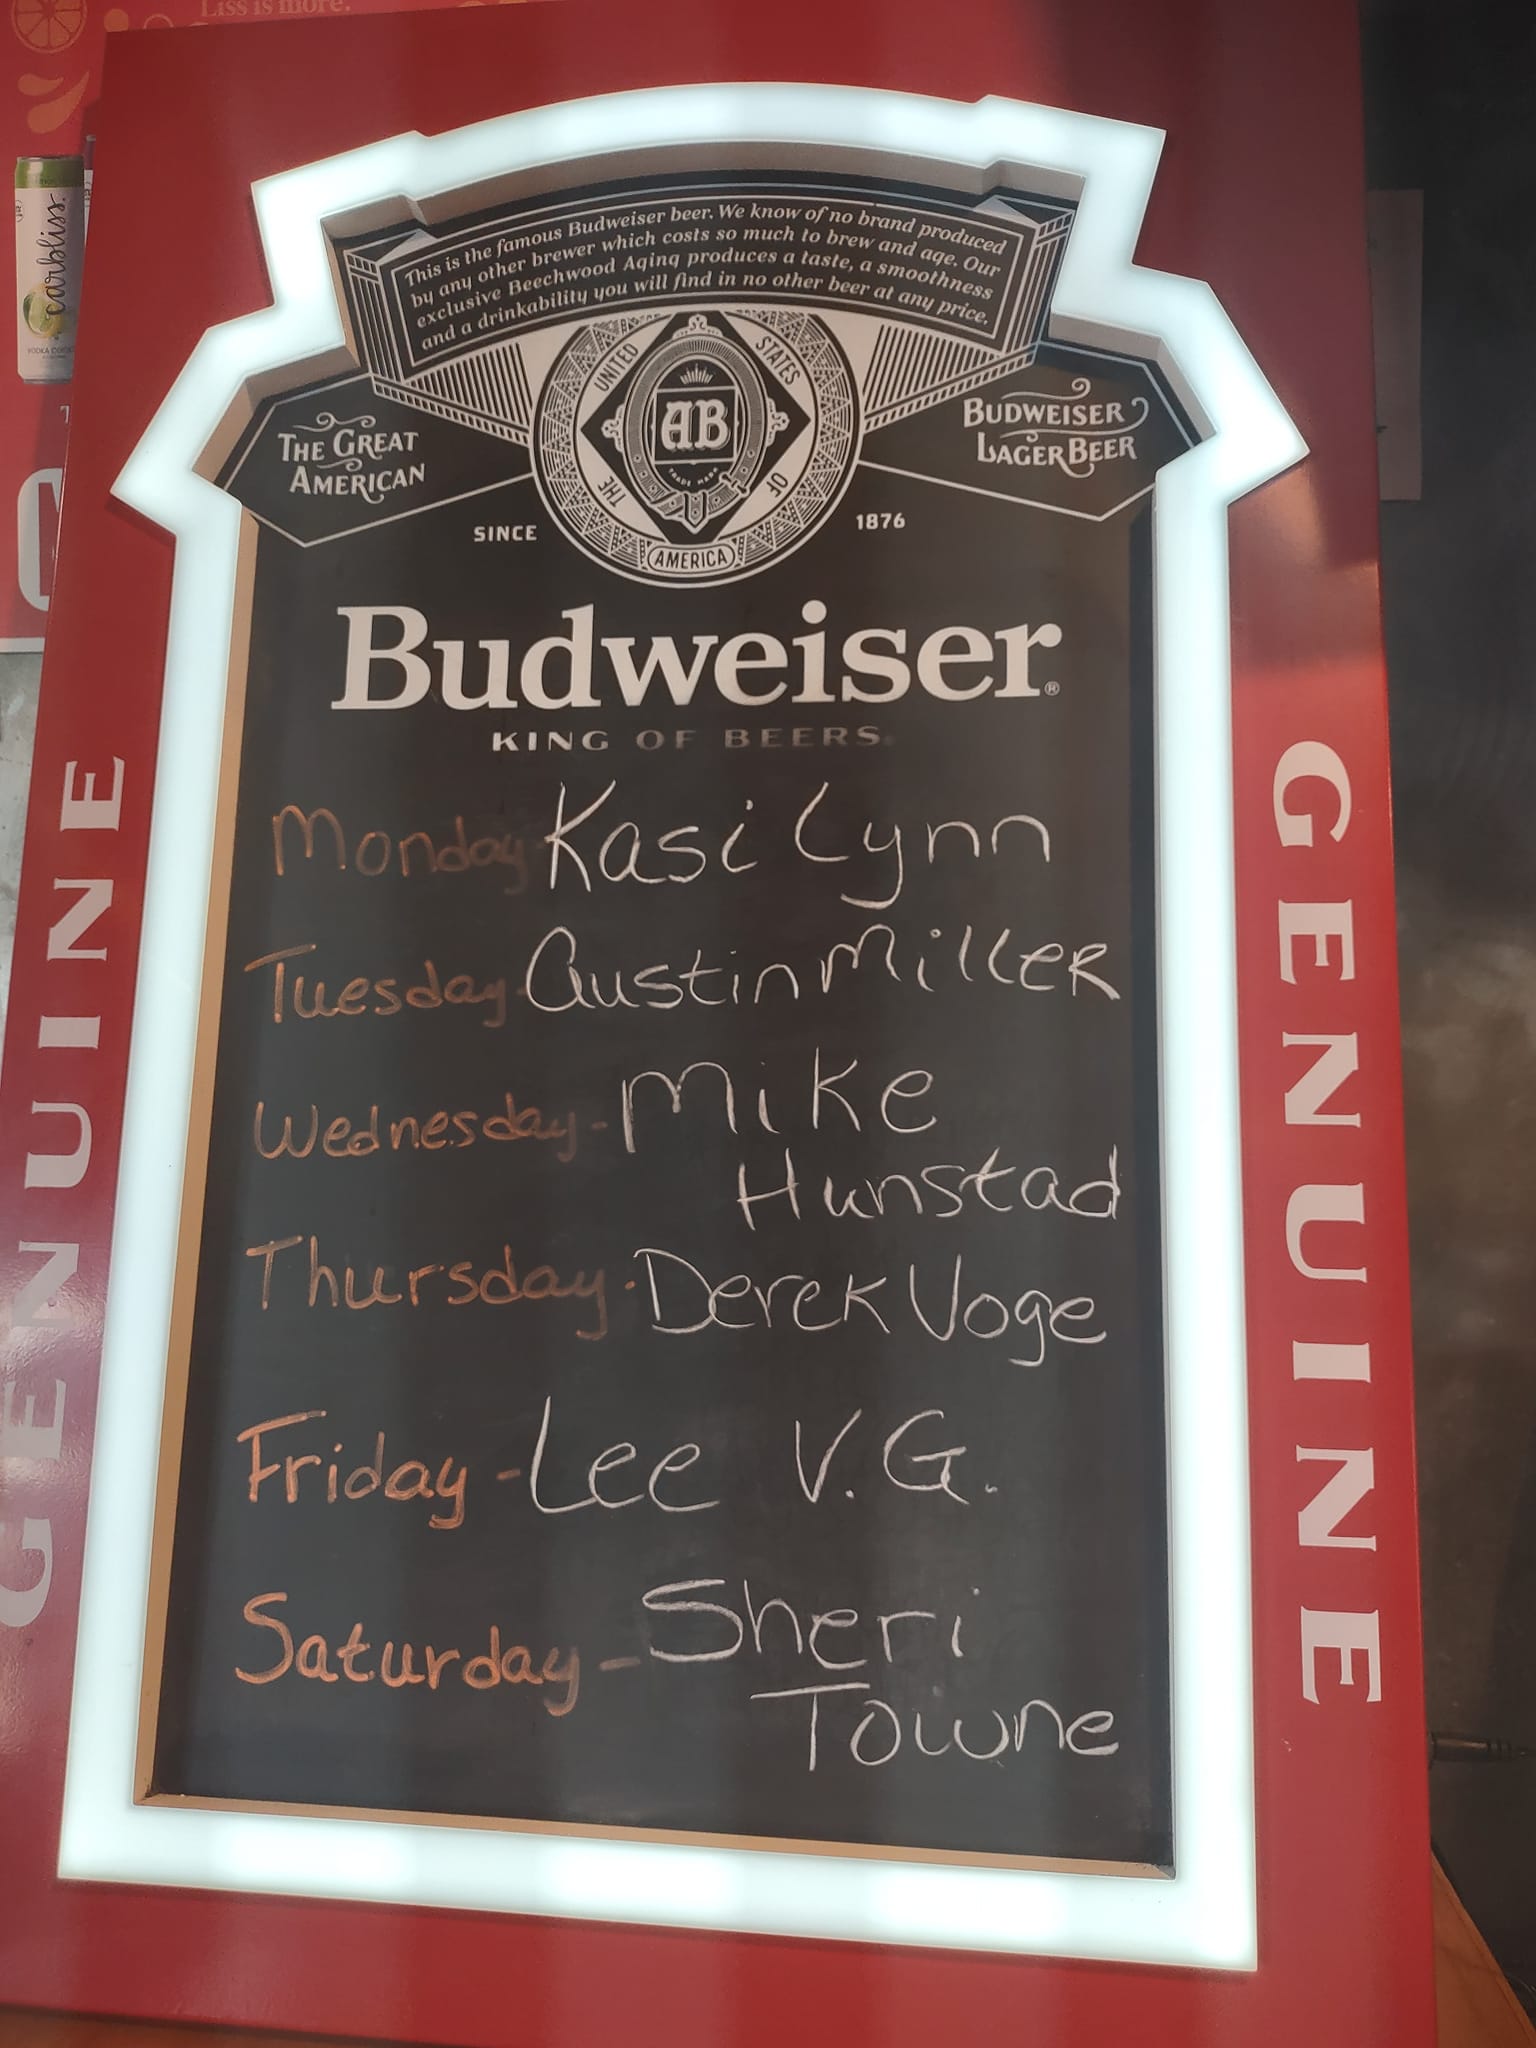 Liss is more.
carbliss
This is the famous Budweiser beer. We know of no brand produced
by any other brewer which costs so much to brew and age. Our
exclusive Beechwood Aging produces a taste, a smoothness
and a drinkability you will find in no other beer at any price.
THE GREAT
AMERICAN
UNITED STATES
THE OF
AMERICA
AB
TRADE MARK
BUDWEISER
LAGER BEER
SINCE 1876
Budweiser®
KING OF BEERS®
Monday-Kasi Lynn
Tuesday-Austin Miller
Wednesday-Mike
Hunstad
Thursday-Derek Voge
Friday-Lee V.G.
Saturday-Sheri
Towne
GENUINE
GENUINE